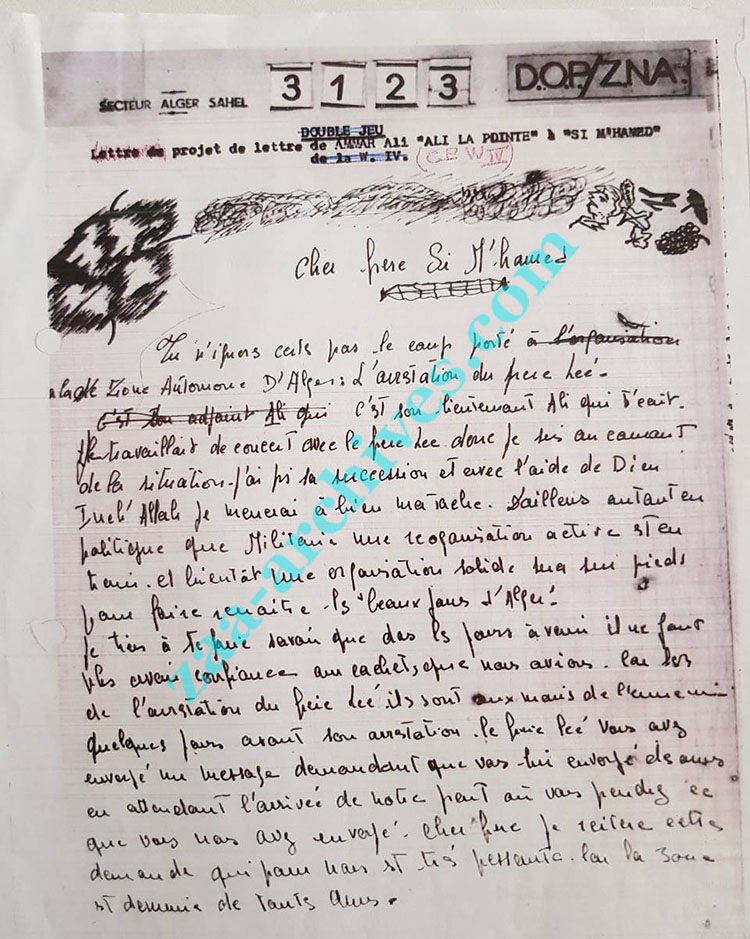 SECTEUR ALGER SAHEL
3 1 2 3
D.O.P/Z.N.A.
DOUBLE JEU
Lettre de projet de lettre de AMMAR Ali "ALI LA POINTE" à "SI M'HAMED"
de la W. IV. (C.P. W IV)
Cher frere Si M'hamed
Tu n'ignores certes pas le coup porté à l'organisation
a la Zone Autonome D'Alger: L'arrestation du frere Lee-
C'est son adjoint Ali qui C'est son lieutenant Ali qui t'ecrit.
travaillait de concert avec le frere Lee donc je suis au courant
de la situation. j'ai pis sa succession et avec l'aide de Dieu
Inch' Allah je menerai à bien ma tache. D'ailleurs autant en
politique que Militaire une reorganisation active st en
train. et bientôt une organisation solide sera sur pieds
pour faire renaitre ls "beaux jours d'Alger"
je tiens à te faire savoir que dans ls jours à venir il ne faut
plus avoir confiance au cachets, que nous avions. Car lors
de l'arrestation du frere Lee ils sont aux mains de l'ennemi
quelques jours avant son arrestation. le frere Lee vous avez
envoyé un message demandant que vous lui envoyé ds armes
en attendant l'arrivée de notre part où vous perdez ce
que vous nous avez envoyé. Cher frere je reitere cette
demande qui pour nous st très pressante. Car la Zone
st demunie de toutes Armes.
zaa-archives.com